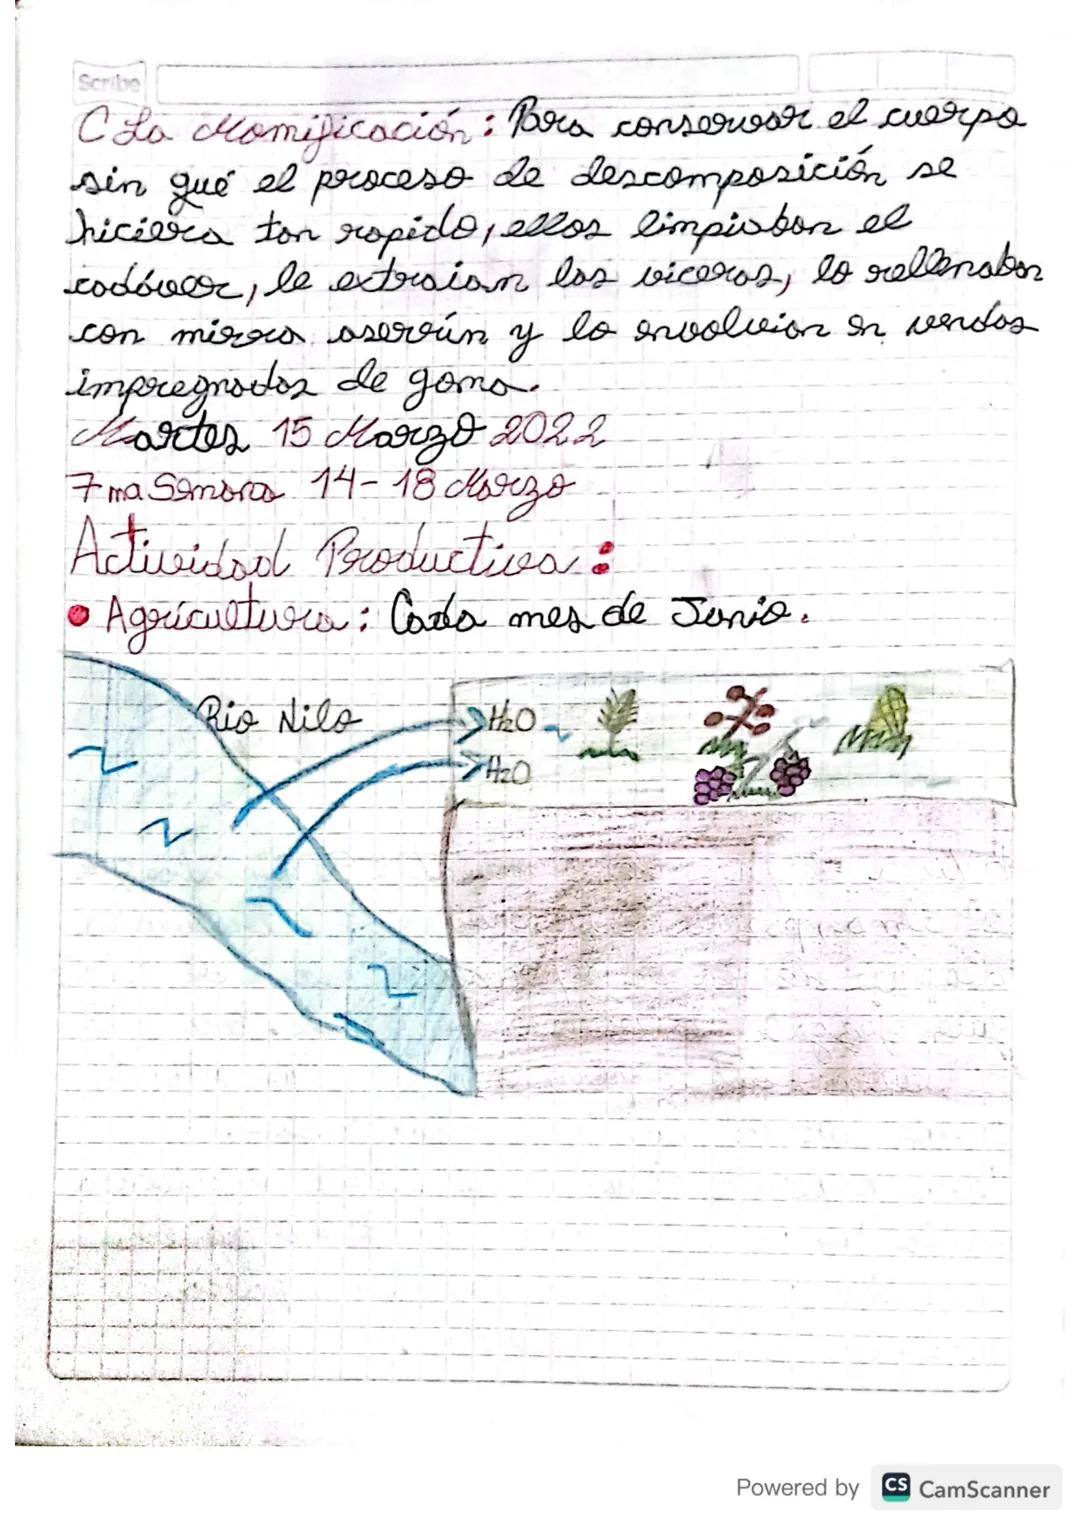 Scribe
C La Momificación: Para conservar el cuerpo
sin qué el proceso de descomposición se
hiciera tan rapido, ellos limpiaban el
cadáver, le extraian las viceras, lo rellenaban
con mirra aserrún y lo envolvian en vendas
impregnadas de goma.
Martes 15 Marzo 2022
7ma Semana 14-18 Marzo
Actividad Productiva:
• Agricultura: Cada mes de Junio.
Rio Nilo
H2O
H2O
Powered by CS CamScanner